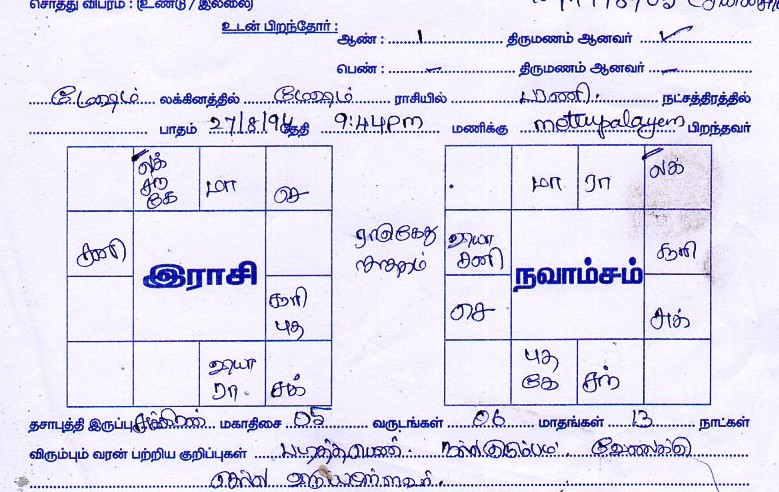 சொத்து விபரம் : (உண்டு / இல்லை)
உடன் பிறந்தோர் :
ஆண் : 1 திருமணம் ஆனவர் ✓
பெண் : – திருமணம் ஆனவர் –
மேஷம் லக்கினத்தில் மேஷம் ராசியில் பரணி நட்சத்திரத்தில்
பாதம் 27/8/94 தேதி 9:44PM மணிக்கு mettupalayam பிறந்தவர்
லக் சந் கே
மா
செ
சனி
இராசி
சூரி புத
குயா ரா
சுக்
ராகு கேது
மா
ரா
லக்
குயா சனி
நவாம்சம்
சூரி
செ
சுக்
புத கே
சந்
தசாபுத்தி இருப்பு சுக்கிரன் மகாதிசை 05 வருடங்கள் 06 மாதங்கள் 13 நாட்கள்
விரும்பும் வரன் பற்றிய குறிப்புகள் படித்த பெண் நல்ல குடும்பம்